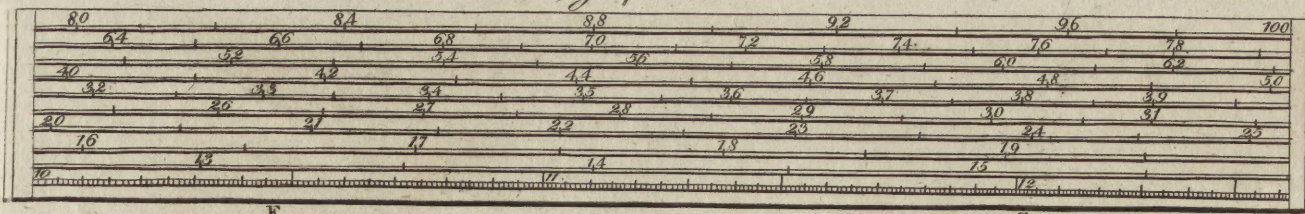 80 84 88 92 96 100
64 66 68 70 72 74 76 78
52 54 56 58 60 62
40 42 44 46 48 50
32 33 34 35 36 37 38 39
26 27 28 29 30 31
20 21 22 23 24 25
16 17 18 19
13 14 15
10 11 12